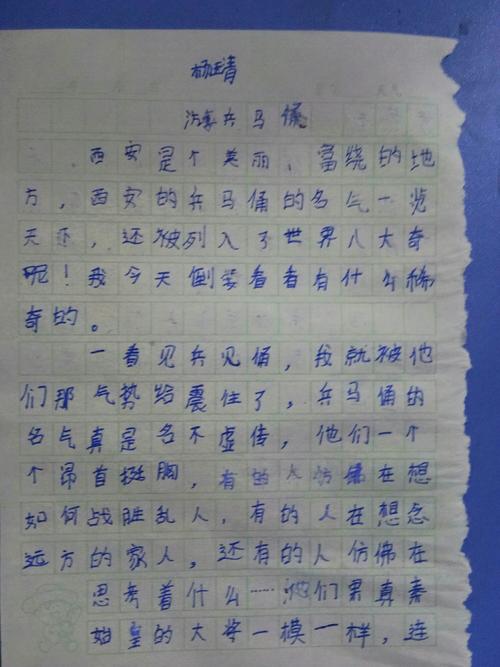 杨

兵马俑
西安是个美丽、富绕的地
方，西安的兵马俑的名气一览
天下，还被列入了世界八大奇
呢！我今天倒要看看有什么稀
奇的。
一看见兵见俑，我就被他
们那气势给震住了，兵马俑的
名气真是名不虚传，他们一个
个昂首挺胸，有的人仿佛在想
如何战胜乱人，有的人在想念
远方的家人，还有的人仿佛在
思考着什么……他们果真秦
始皇的大将一模一样，连